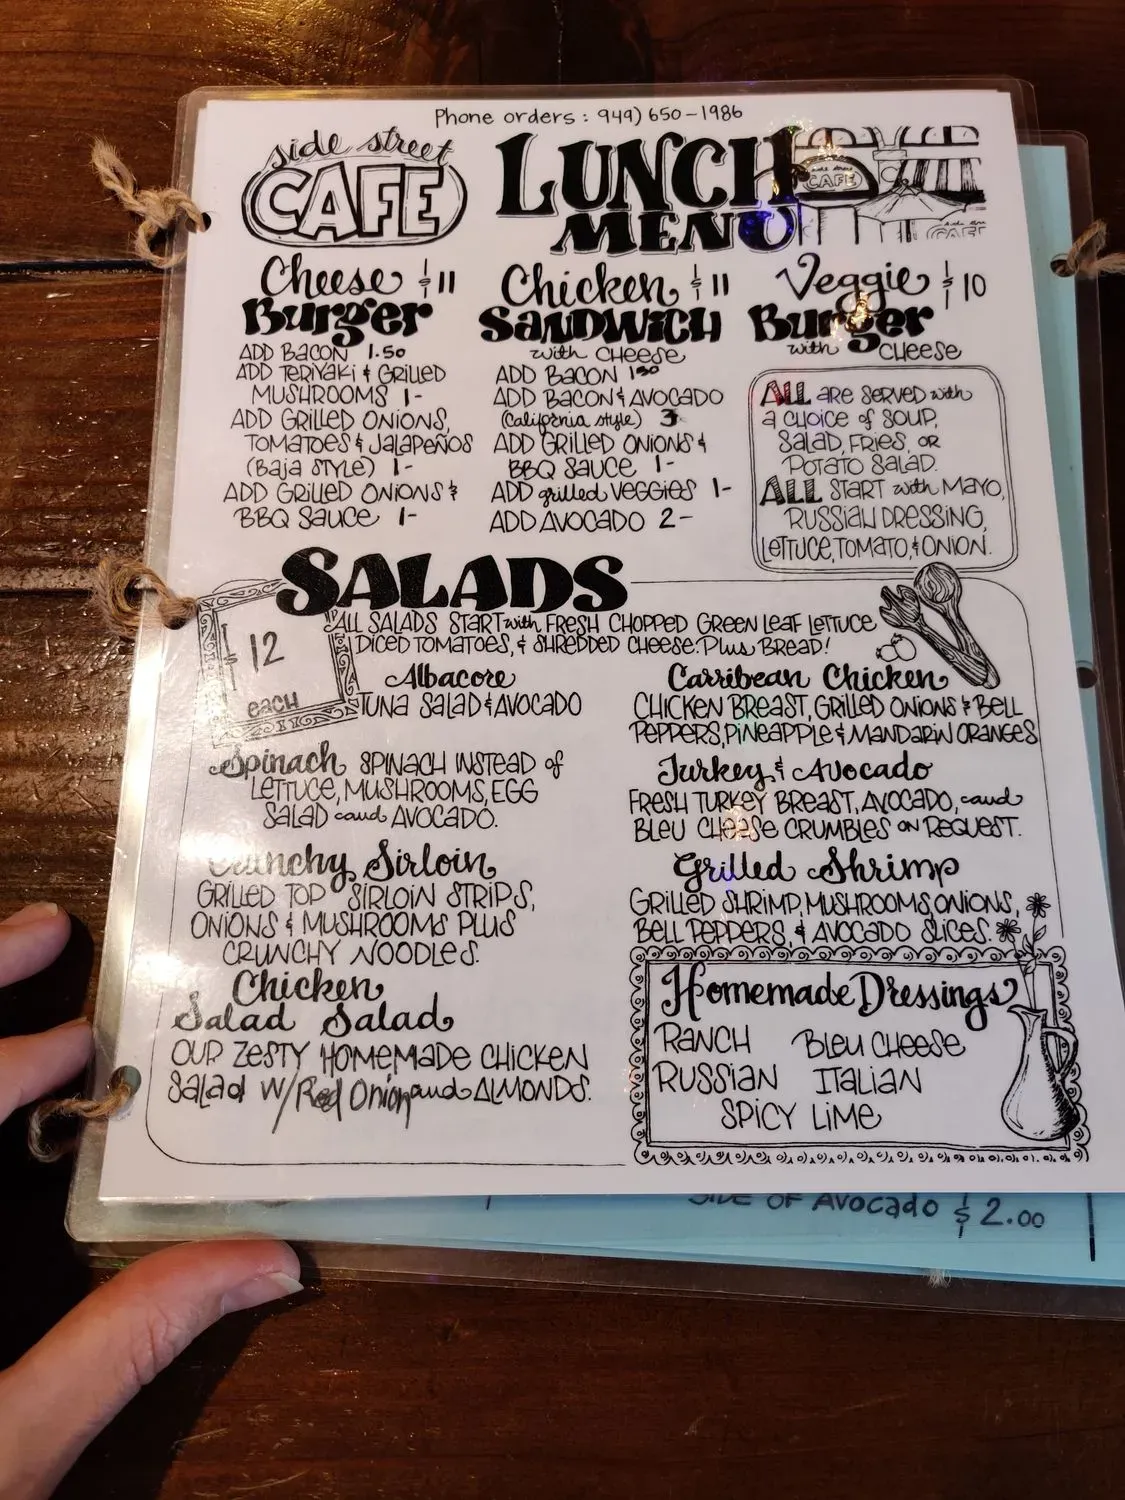 Phone orders: 949) 650-1986
side street
CAFE
LUNCH
MENU
Cheese $11
Burger
ADD BACON 1.50
ADD TERIYAKI & GRILLED
MUSHROOMS 1-
ADD GRILLED ONIONS,
TOMATOES & JALAPEÑOS
(BAJA STYLE) 1-
ADD GRILLED ONIONS &
BBQ SAUCE 1-
Chicken $11
SANDWICH
with CHEESE
ADD BACON 1.50
ADD BACON & AVOCADO
(California style) 3-
ADD GRILLED ONIONS &
BBQ SAUCE 1-
ADD grilled VEGGIES 1-
ADD AVOCADO 2-
Veggie $10
Burger
with CHEESE
ALL ARE SERVED with
a CHOICE of SOUP,
SALAD, FRIES, OR
POTATO SALAD.
ALL START with MAYO,
RUSSIAN DRESSING,
LETTUCE, TOMATO, & ONION.
SALADS
$12
each
ALL SALADS START with FRESH CHOPPED GREEN LEAF LETTUCE
DICED TOMATOES, & SHREDDED CHEESE. Plus BREAD!
Albacore
TUNA SALAD & AVOCADO
Spinach SPINACH INSTEAD of
LETTUCE, MUSHROOMS, EGG
SALAD and AVOCADO.
Crunchy Sirloin
GRILLED TOP SIRLOIN STRIPS,
ONIONS & MUSHROOMS PLUS
CRUNCHY NOODLES.
Chicken
Salad Salad
OUR ZESTY HOMEMADE CHICKEN
Salad W/ Red Onion and ALMONDS.
Carribean Chicken
CHICKEN BREAST, GRILLED ONIONS & BELL
PEPPERS, PINEAPPLE & MANDARIN ORANGES
Turkey & Avocado
FRESH TURKEY BREAST, AVOCADO, and
BLEU CHEESE CRUMBLES ON REQUEST.
Grilled Shrimp
GRILLED SHRIMP, MUSHROOMS, ONIONS,
BELL PEPPERS, & AVOCADO SLICES.
Homemade Dressings
RANCH BLEU CHEESE
RUSSIAN ITALIAN
SPICY LIME
SIDE OF Avocado $2.00